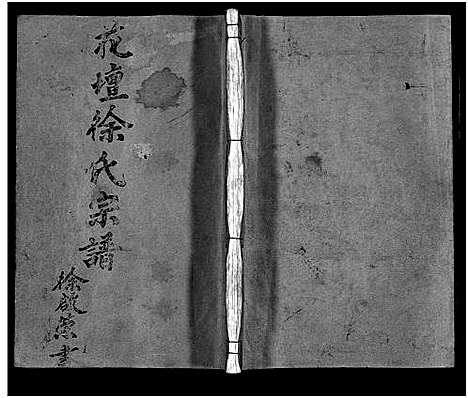 花壇徐氏宗譜
徐啟蕙書